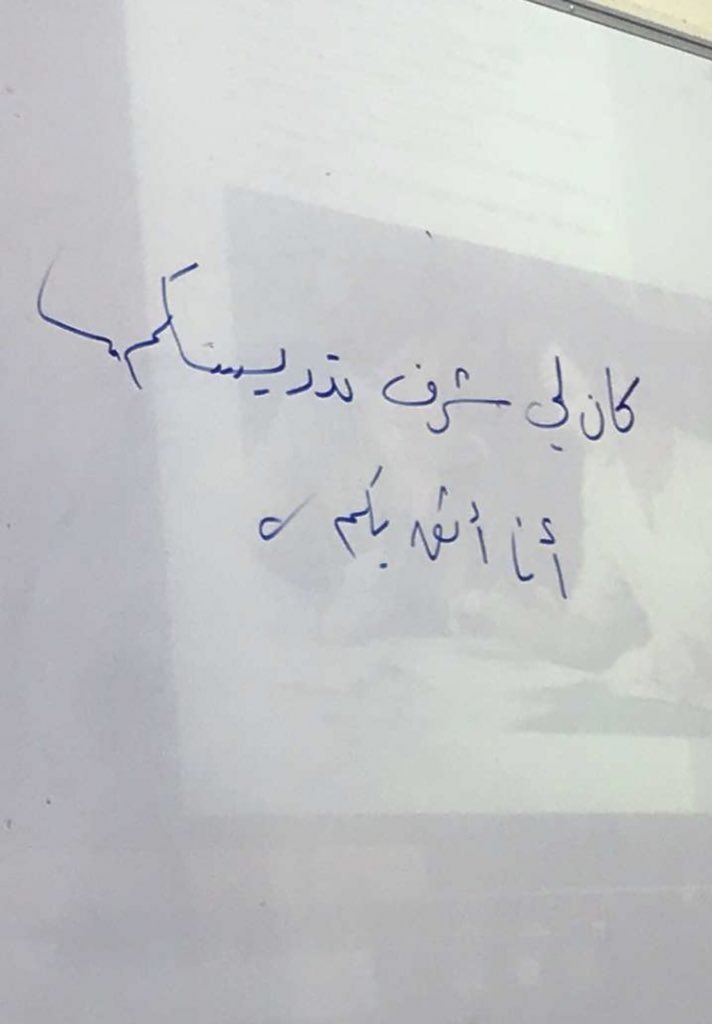 كان لي شرف تدريسكم
أنا أثق بكم